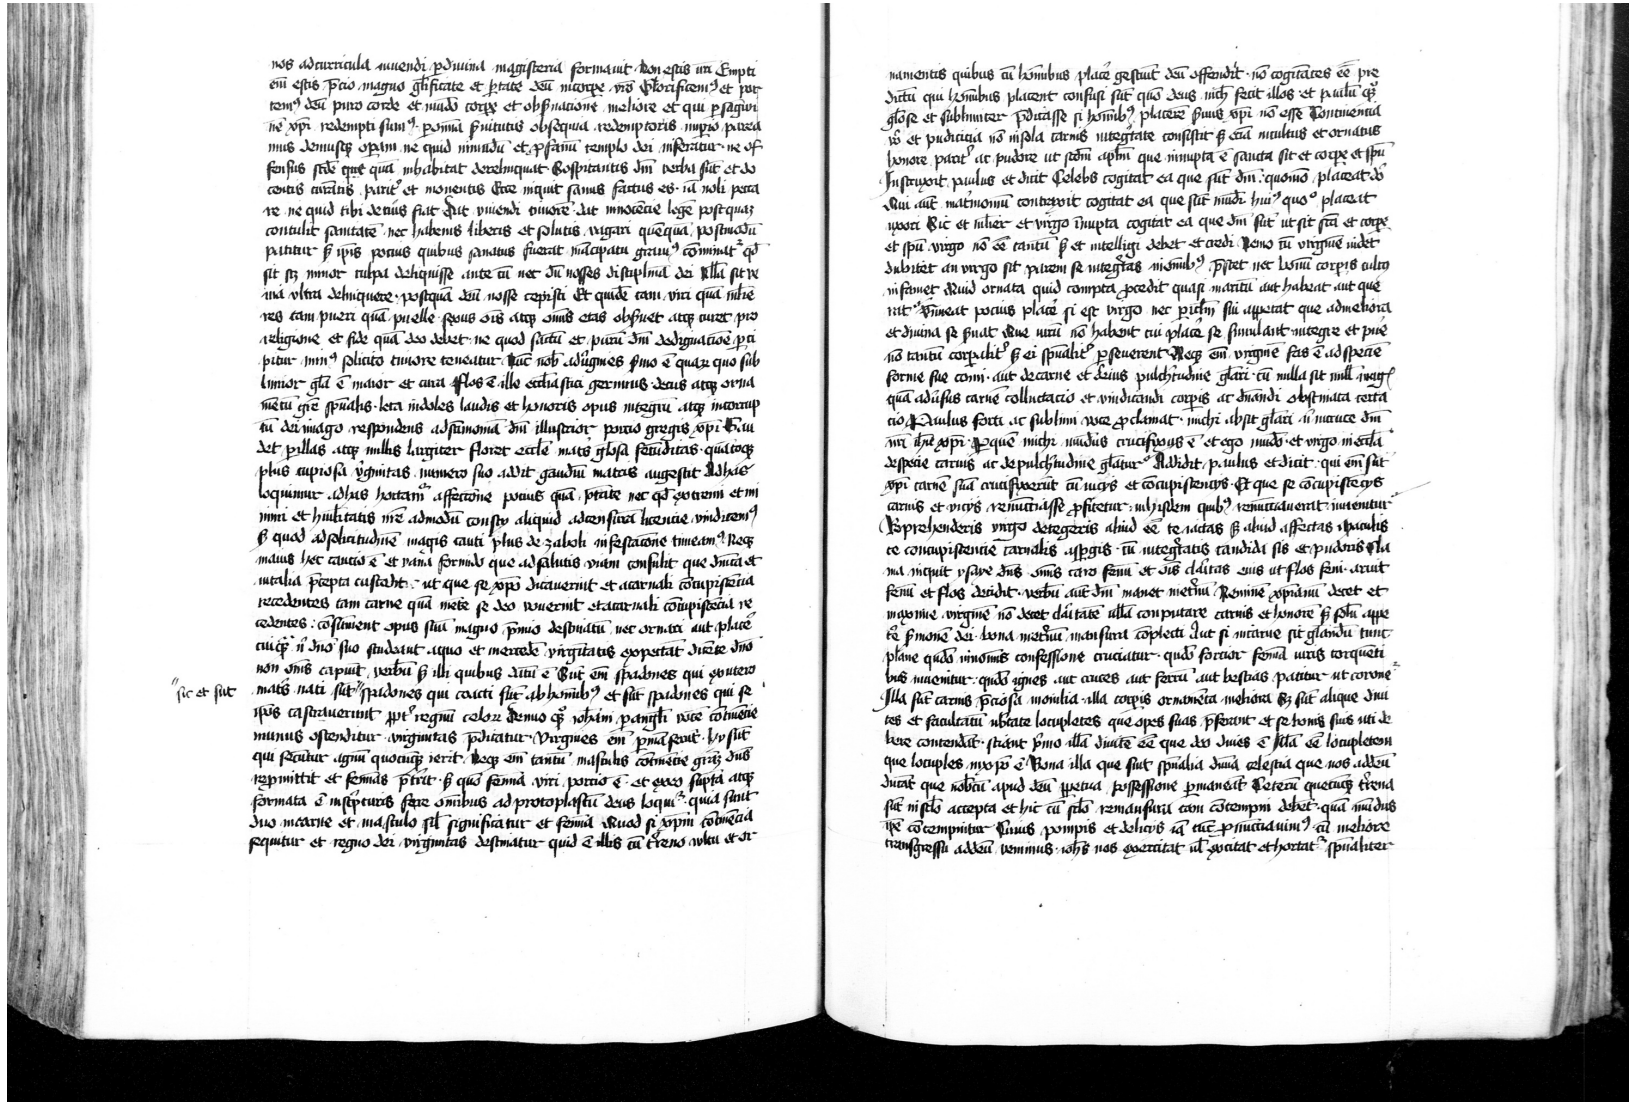 nos ad curricula viuendi ꝑ diuina magisteria formauit. Non estis vr̄i Empti
em̄ estis p̄cio magno gl̄ificate et portate deū in corpe vr̄o Glorificemꝰ et por
temꝰ deū puro corde et mūdo corpe et obẜuacione meliore et qui ꝑ sāguī
nē xp̄i redempti sumꝰ. ꝑ om̄ia ẜuitutis obsequia redemptoris imꝑio parea
mus demusqꝫ operam ne quid inmūdū et ꝓfanū templo dei inferatur. ne of
fensus sedē quā inhabitat derelinquat. Sospitantis dn̄i verba sūt et do
centis curātis parit᷑ et monentis Ecce inquit sanus factus es. iā noli pecca
re. ne quid tibi deteriꝰ fiat Dat viuendi timorē. dat innocēcie legē postquaꝫ
contulit sanitatē. nec habenis liberis et solutis vagari quēquā postmodū
patitur ẜ ip̄is pocius quibus sanatus fuerat mācipatū grauiꝰ cōminat᷑ qd̄
sit scꝫ minor culpa deliquisse ante cū nec dū nosses disciplinā dei Nulla sit ve
nia vltra delinquere. postquā deū nosse cepisti Et quidē tam viri quā mulie
res tam pueri quā puelle. sexus om̄is atqꝫ om̄is etas obẜuet atqꝫ curet pro
religione et fide quā deo debet. ne quod sāctū et purū dn̄i dedignacione ꝑci
pitur minꝰ solicito timore teneatur. Nūc nob̄ ad v̓gines ẜmo ē quaꝝ quo sub
limior gl̄a ē maior et cura Flos ē ille eccl̄iastici germinis. decus atqꝫ orna
mētū gr̄e spūalis. leta indoles laudis et honoris opus integrū atqꝫ incorrup
tū dei imago respondens ad sc̄imoniā dn̄i illustrior porcio gregis xp̄i Gau
det ꝑ illas atqꝫ in illis largiter floret eccl̄ie mat᷑s gl̄osa fecūditas. quātoqꝫ
plus copiosa v̓ginitas numero suo addit gaudiū matris augescit Ad has
loquimur ad has hortam᷑ affectione pocius quā ptāte nec qd̄ extremi et mi
nimi et hūilitatis nr̄e admodū consci aliquid ad censurā licencie vindicemꝰ
ẜ quod ad solicitudinē magis cauti plus de zaboli infestacione timeamꝰ. Neqꝫ
inanis hec cautio ē et vana formido que ad salutis viam consulit que dn̄ica et
vitalia p̄cepta custodit. ut que se xp̄o dicauerint et a carnali cōcupiscēcia
recedentes tam carne quā mēte se deo vouerint et a carnali cōcupiscēcia re
cedentes: cōsūment opus suū magno p̄mio destinatū nec ornari aut placē
cuiqꝫ n̄ dn̄o suo studeant a quo et mercedē virginitatis expetāt dicēte dn̄o
non om̄s capiūt verbū ẜ illi quibus datū ē Sūt em̄ spadones qui ex vtero
mat᷑s nati sūt ″spadones qui coacti sūt ab homībꝰ et sūt spadones qui se
″sic et sūt
ip̄os castrauerunt ꝓpt᷑ regnū celoꝝ Denuo qꝫ hac ꝑ angl̄i vocē cōtinēcie
munus ostenditur virginitas p̄dicatur. Virgines em̄ ꝑmāserūt. hij sūt
qui secūtur agnū quocūqꝫ ierit. Neqꝫ em̄ tantū masculis cōtinēcie gr̄aꝫ dn̄s
repmittit et feminas p̄terit. ẜ quō femina viri porcio ē. et ex eo sūpta atqꝫ
formata ē in sc̄pturis fere om̄ibus ad protoplastū deus loquit᷑. quia sunt
duo in carne et masculo sil̄ significatur et femina Quod si xp̄m cōtinēcia
sequitur et regno dei virginitas destinatur quid ē illis cū t᷑reno cultu et or
namentis quibus cū hoīmbus placē gestiūt deū offendūt. nō cogitātes eē pre
dictū qui hoīmbus placent confusi sūt quō deus nich̄ fecit illos et paulū qꝫ
gl̄ose et sublimiter p̄dicasse si homībꝰ placerē ẜuus xp̄i nō essē Continencia
v̓o et pudicicia nō in sola carnis integ᷑tate consistit ẜ eciā in cultus et ornatus
honore parit᷑ ac pudore ut scdm̄ aplm̄ que innupta ē sancta sit et corpe et spū
Instruxit paulus et dicit Celebs cogitat ea que sūt dn̄i: quomō placeat dō
Qui aūt matrimoniū contraxit cogitat ea que sūt mūdi huiꝰ quō placeat
vxori Sic et mulier et virgo innupta cogitat ea que dn̄i sūt ut sit sc̄a et corpe
et spū. virgo nō eē tantū ẜ et intelligi debet et credi Nemo cū virginē videt
dubitet an virgo sit parem se integ᷑tas in om̄ibꝰ p̄stet nec bonū corpis cultꝰ
infamet Quid ornata quid compta ꝓcedit quasi maritū aut habeat aut que
rat᷑ Timeat pocius placē si est virgo. nec ꝑiclm̄ sui appetat que ad meliora
et diuina se ẜuat Que virū nō habent cui placē se simulant integre et pure
nō tantū corpalit᷑ ẜ et spūalit᷑ ꝑseuerent Neqꝫ em̄ virginē fas ē ad speciē
forme sue comi. aut de carne et de eius pulch᷑tudine gl̄ari. cū nulla sit mul̄ magꝭ
quā adūsus carnē colluctacio et vincendi corpis ac dn̄andi obstinata certa
cio Paulus forti ac sublimi voce ꝓclamat. michi absit gl̄ari n̄ in cruce dn̄i
nr̄i ih̄u xp̄i. ꝑ quē michi mūdus crucifixus ē et ego mūdo. et virgo in eccl̄ia
de specie carnis ac de pulch᷑tudine gl̄atur Addidit paulus et dicit. qui em̄ sūt
xp̄i carnē suā crucifixerūt cū vicijs et cōcupiscencijs. Et que se cōcupiscēcijs
carnis et vicijs renūciasse ꝓfitetur: in hijsdem quibꝰ renūciauerat inuenitur
Deprehenderis virgo detegeris aliud eē te iactas ẜ aliud affectas Maculis
te concupiscencie carnalis asꝑgis. cū integ᷑tatis candida sis et pudoris Cla
ma inquit ysaye dn̄s om̄is caro fenū et om̄is clāitas eius ut flos feni. aruit
fenū et flos decidit. verbū aūt dn̄i manet in et᷑nū Neminē xp̄ianū decet et
maxime virginē nō decet clāitatē ullā conputare carnis et honorē ẜ solū appe
tē ẜmonē dei. bona in et᷑nū mansura cōplecti Aut si in carne sit gl̄andū tunc
plane quādo in nominis confessione cruciatur. quādo forcior femīa viris torquenti
bus inuenitur. quādo ignes aut cruces aut ferrū aut bestias patitur ut coronet᷑
Illa sūt carnis p̄ciosa monilia. illa corpis ornamēta meliora Sꝫ sūt alique diui
tes et facultatū vb̓tate locupletes que opes suas p̄ferant et se bonis suis vti de
bere contendāt. sciant p̄mo illā diuitē eē que deo diues ē Illā eē locupletem
que locuples in xp̄o ē Bona illa que sūt spūalia diuina celestia que nos ad deū
ducāt que nobiscū apud deū ꝑpetua possessione ꝑmaneāt Ceterū quecūqꝫ t᷑rena
sūt in sclō accepta et hic cū sclō remansura tam cōtempni debēt. quā mūdus
ip̄e cōtempnitur Cuius pompis et delicijs iā tūc renūciauimꝰ. cū meliore
transgressu ad deū venimus. ioh̄s nos exercitat vl̄ excitat et hortat᷑ spūaliter